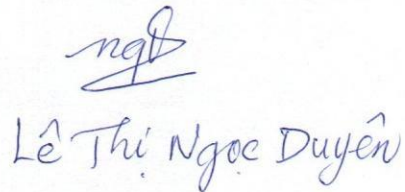 Lê Thị Ngọc Duyên